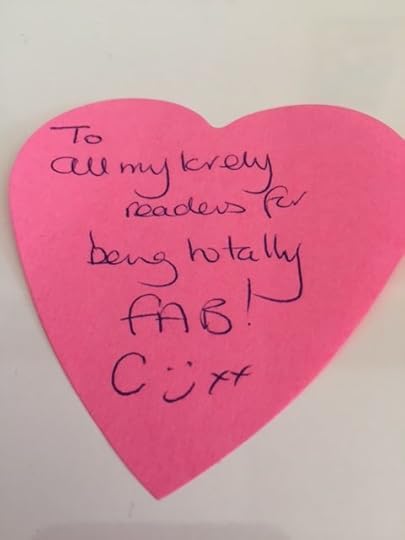 To
all my lovely
readers for
being totally
FAB!
C :) xx